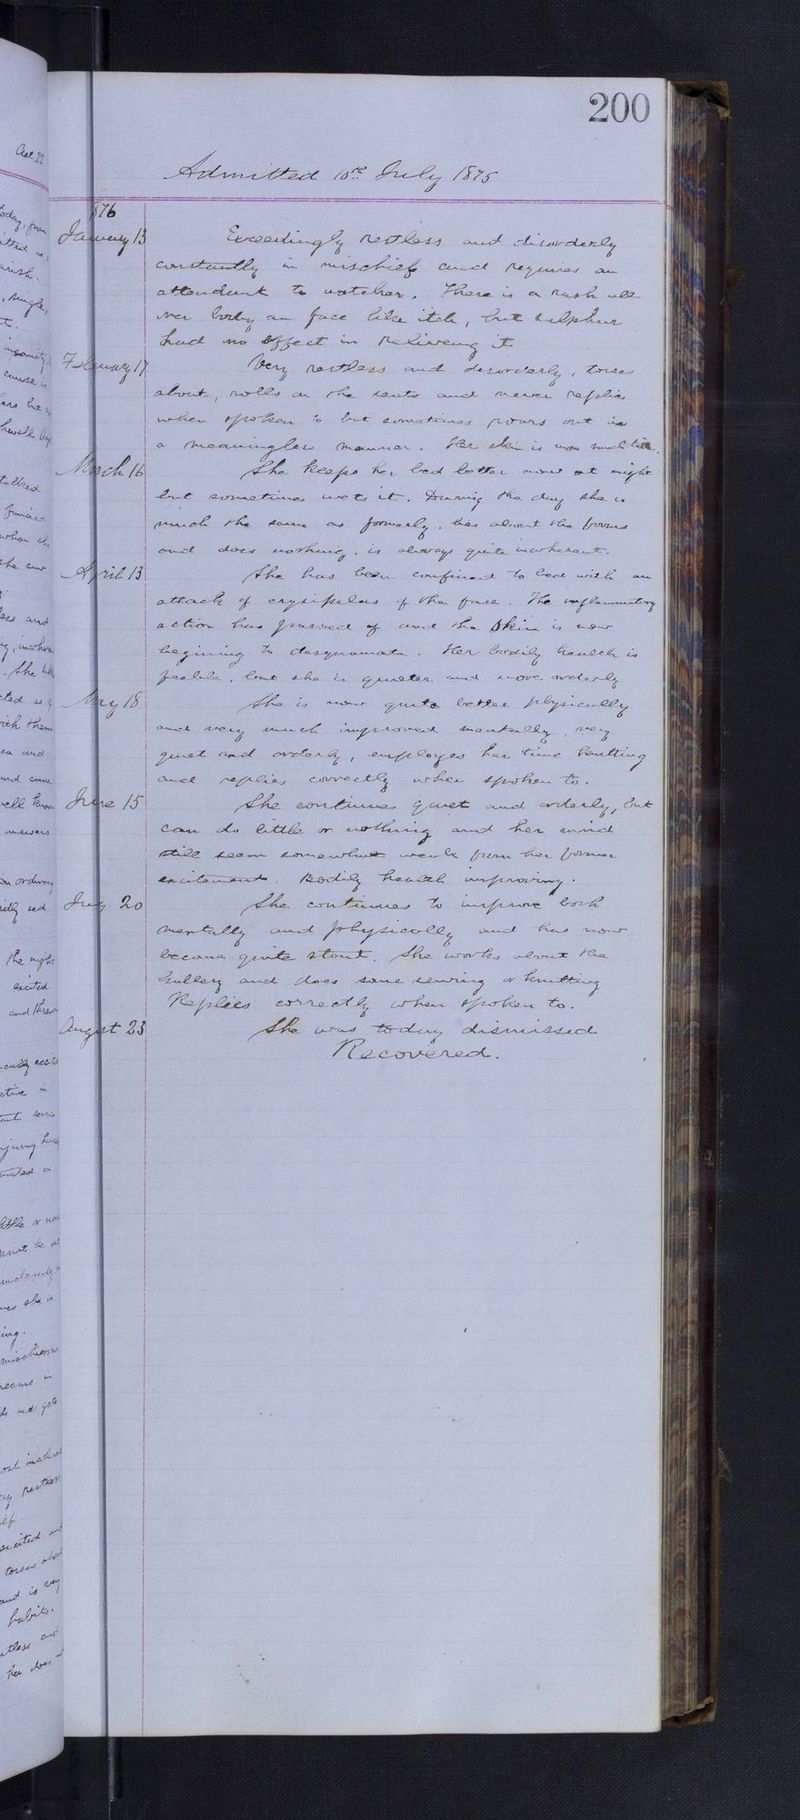 200
Admitted 10th July 1875
1876
January 13 Exceedingly restless and disorderly
constantly in mischief and requires an
attendant to watch her. There is a rash all
over body an face like itch, but sulphur
had no effect in relieving it
February 17 Very restless and disorderly, tosses
about, rolls on the seats and never replies
when spoken to but sometimes roars out in
a meaningless manner. Her skin is now much better.
March 16 She keeps her bed better now at night
but sometimes wets it. During the day she is
much the same as formerly, lies about the
and does nothing, is always quite incoherent.
April 13 She has been confined to bed with an
attack of erysipelas of the face. The inflammatory
action has passed of and the skin is now
begining to desquamate. Her bodily health is
feeble, but she is quieter and more orderly
May 18 She is now quite better physically
and very much improved mentally, very
quiet and orderly, employes her time knitting
and replies correctly when spoken to.
June 15 She continues quiet and orderly, but
can do little or nothing and her mind
still seem somewhat weak from her former
excitement. Bodily health improving.
July 20 She continues to improve both
mentally and physically and has now
become quite stout. She works about the
Gallery and does some sewing or knitting
Replies correctly when spoken to.
August 23 She was today dismissed
Recovered.